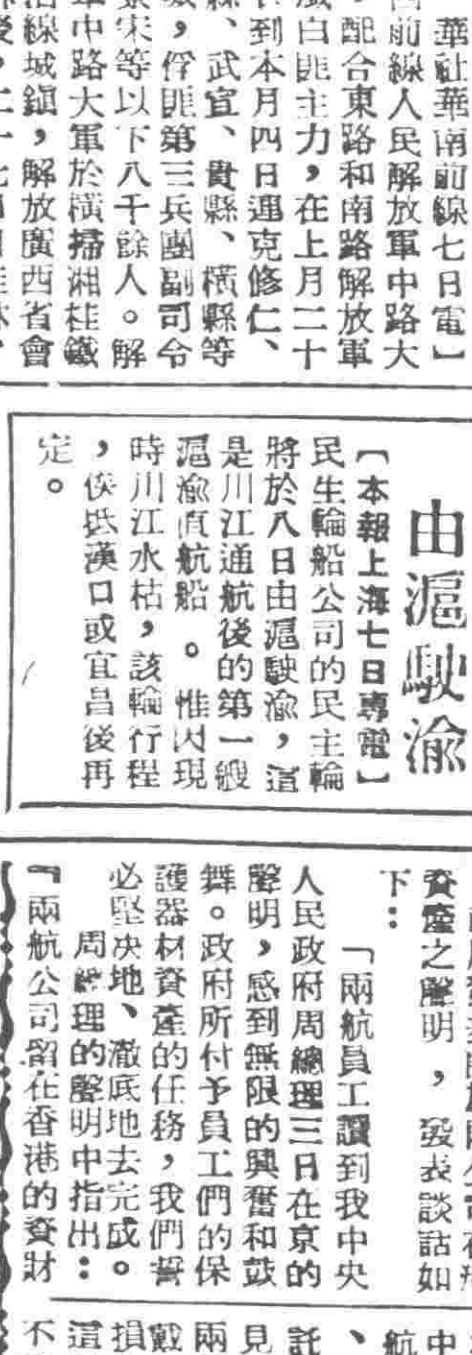 華社華南前線七日電】
前線人民解放軍中路大
配合東路和南路解放軍
白匪主力，在上月二十
到本月四日連克修仁、
、武宣、貴縣、橫縣等
，俘匪第三兵團副司令
宋等以下八千餘人。解
中路大軍於橫掃湘桂鐵
線城鎮，解放廣西省會
由滬駛渝
【本報上海七日專電】
民生輪船公司的民主輪
將於八日由滬駛渝，這
是川江通航後的第一艘
滬渝直航船。惟因現
時川江水枯，該輪行程
，俟抵漢口或宜昌後再
定。
資產之聲明，發表談話如
下：
「兩航員工讀到我中央
人民政府周總理三日在京的
聲明，感到無限的興奮和鼓
舞。政府所付予員工們的保
護器材資產的任務，我們誓
必堅決地、澈底地去完成。
周總理的聲明中指出：
『兩航公司留在香港的資財
航中
、
託
見
兩
戴
損
這
不